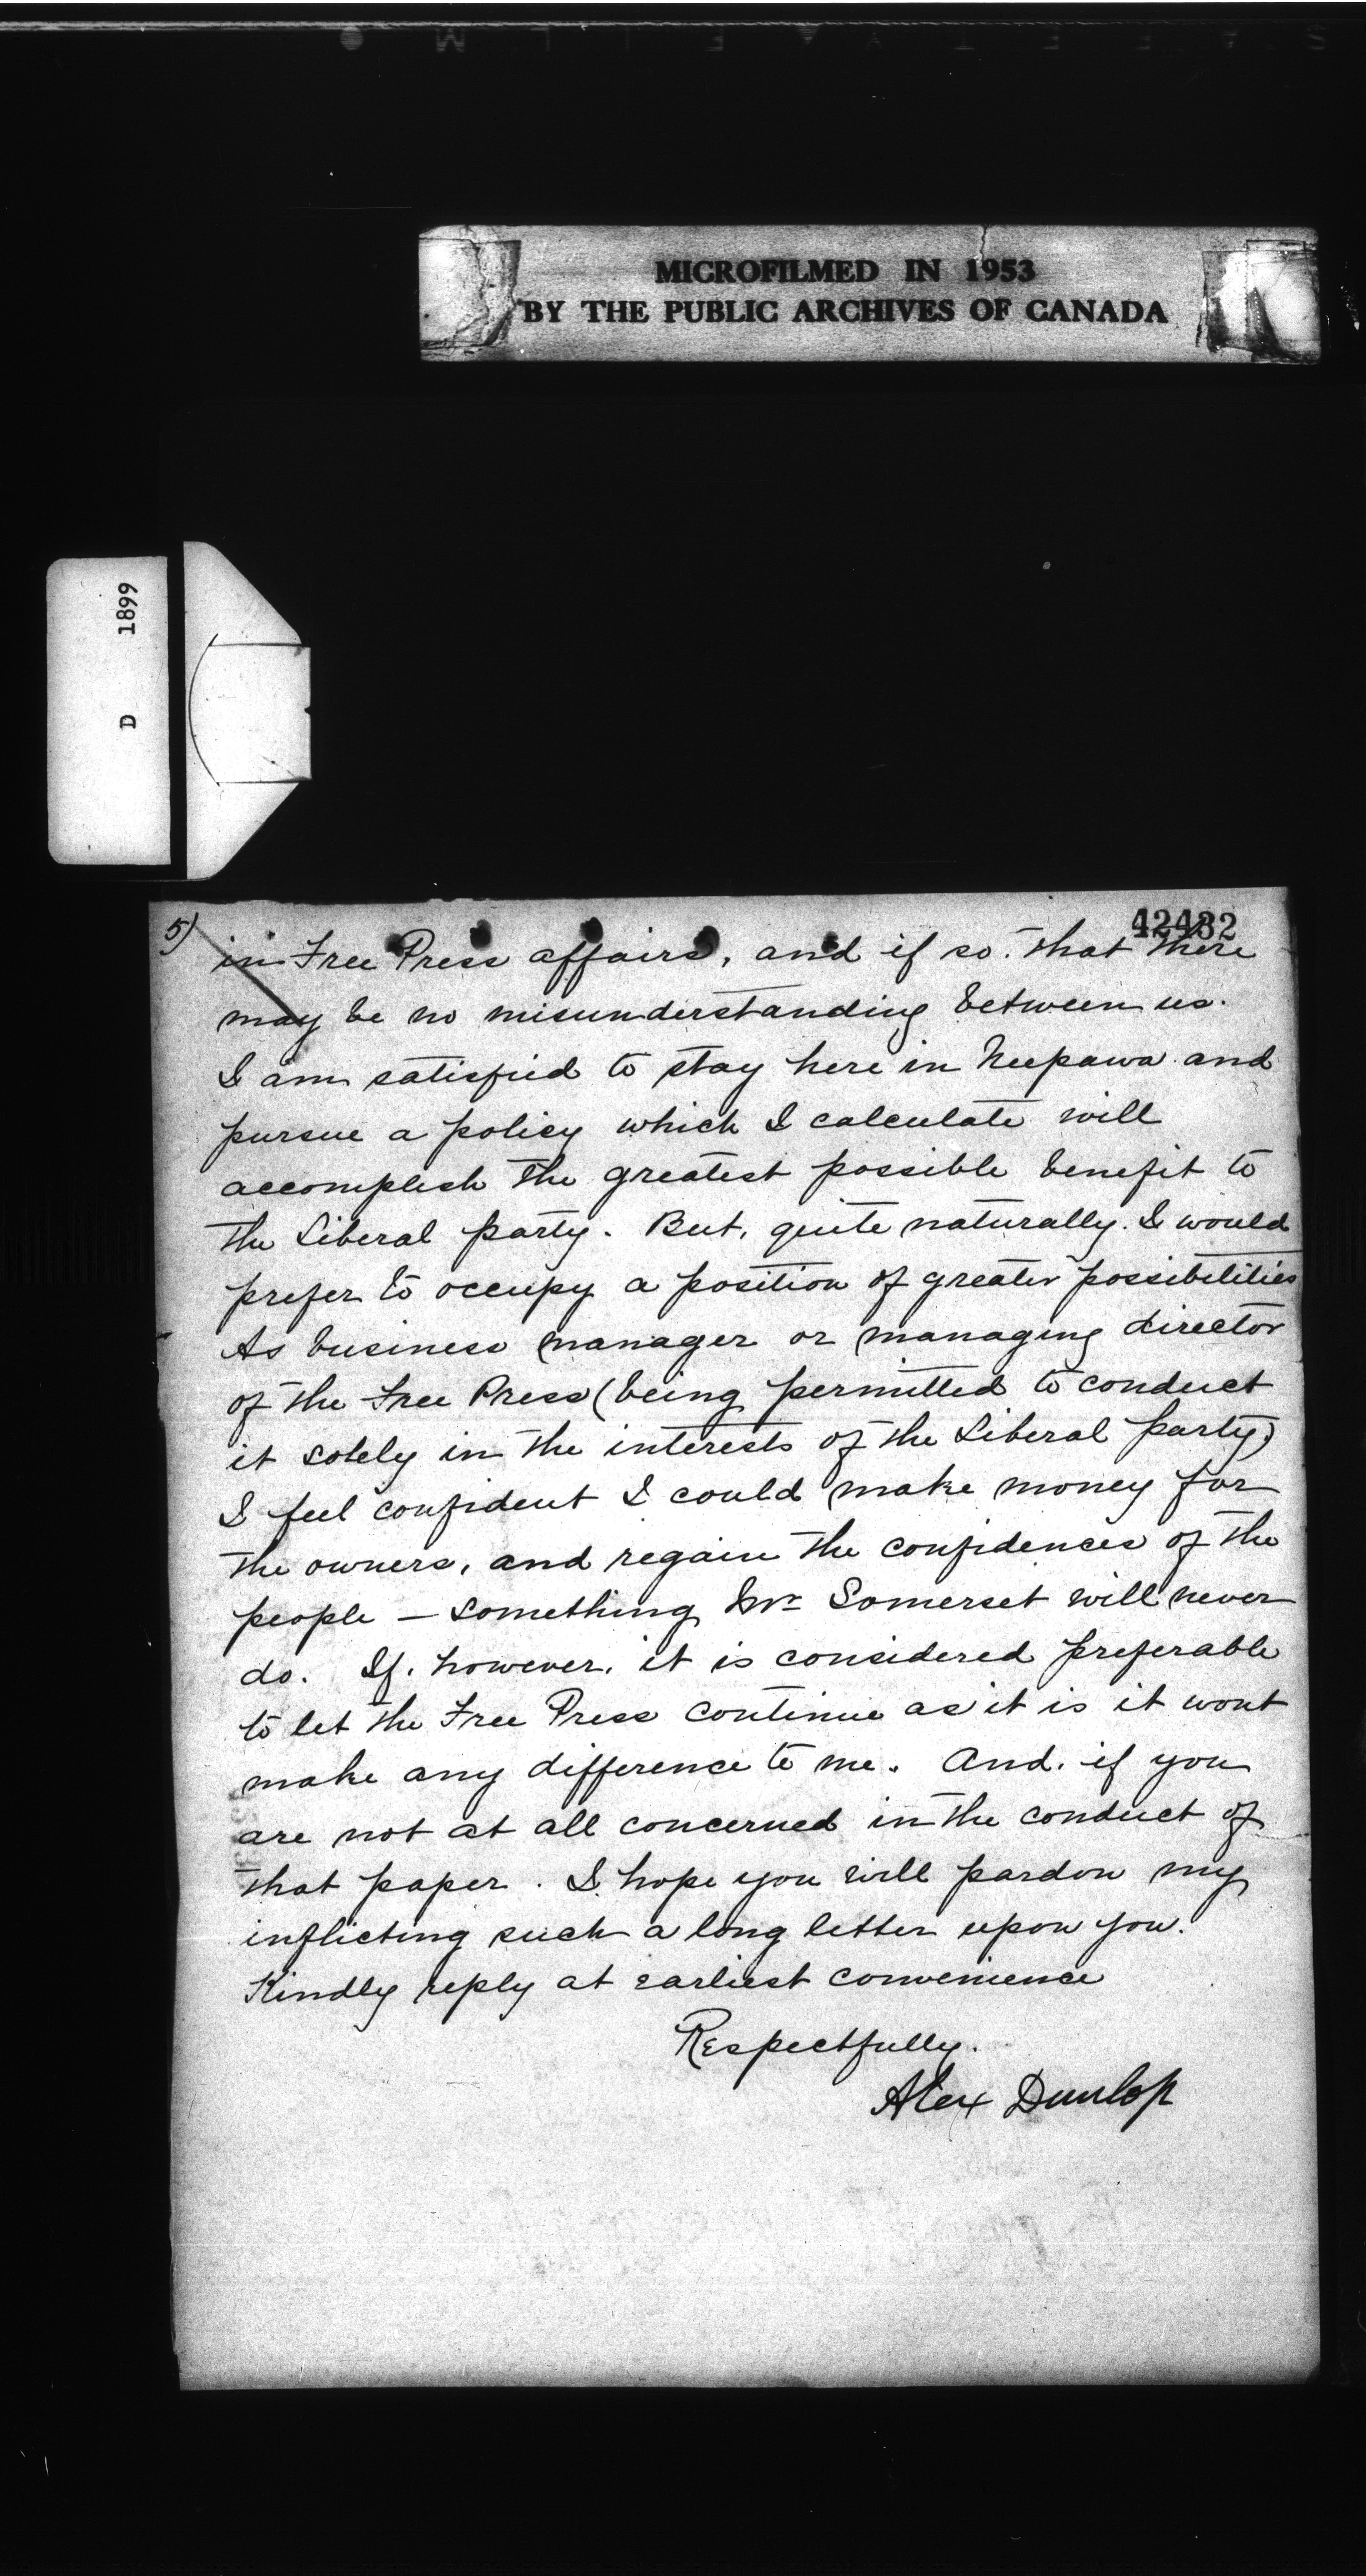 MICROFILMED IN 1953
BY THE PUBLIC ARCHIVES OF CANADA
D 1899
5)
42432
in Free Press affairs, and if so. that there
may be no misunderstanding between us.
I am satisfied to stay here in Neepawa and
pursue a policy which I calculate will
accomplish the greatest possible benefit to
the Liberal party. But, quite naturally. I would
prefer to occupy a position of greater possibilities
As business manager or managing director
of the Free Press (being permitted to conduct
it solely in the interests of the Liberal party)
I feel confident I could make money for
the owners, and regain the confidences of the
people — something Mr Somerset will never
do. If, however, it is considered preferable
to let the Free Press continue as it is it wont
make any difference to me. And, if you
are not at all concerned in the conduct of
that paper. I hope you will pardon my
inflicting such a long letter upon you.
Kindly reply at earliest convenience
Respectfully.
Alex Dunlop